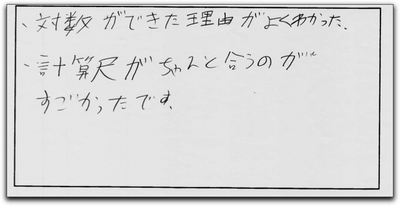 ・対数ができた理由がよくわかった.
・計算尺がちゃんと合うのが
すごかったです.